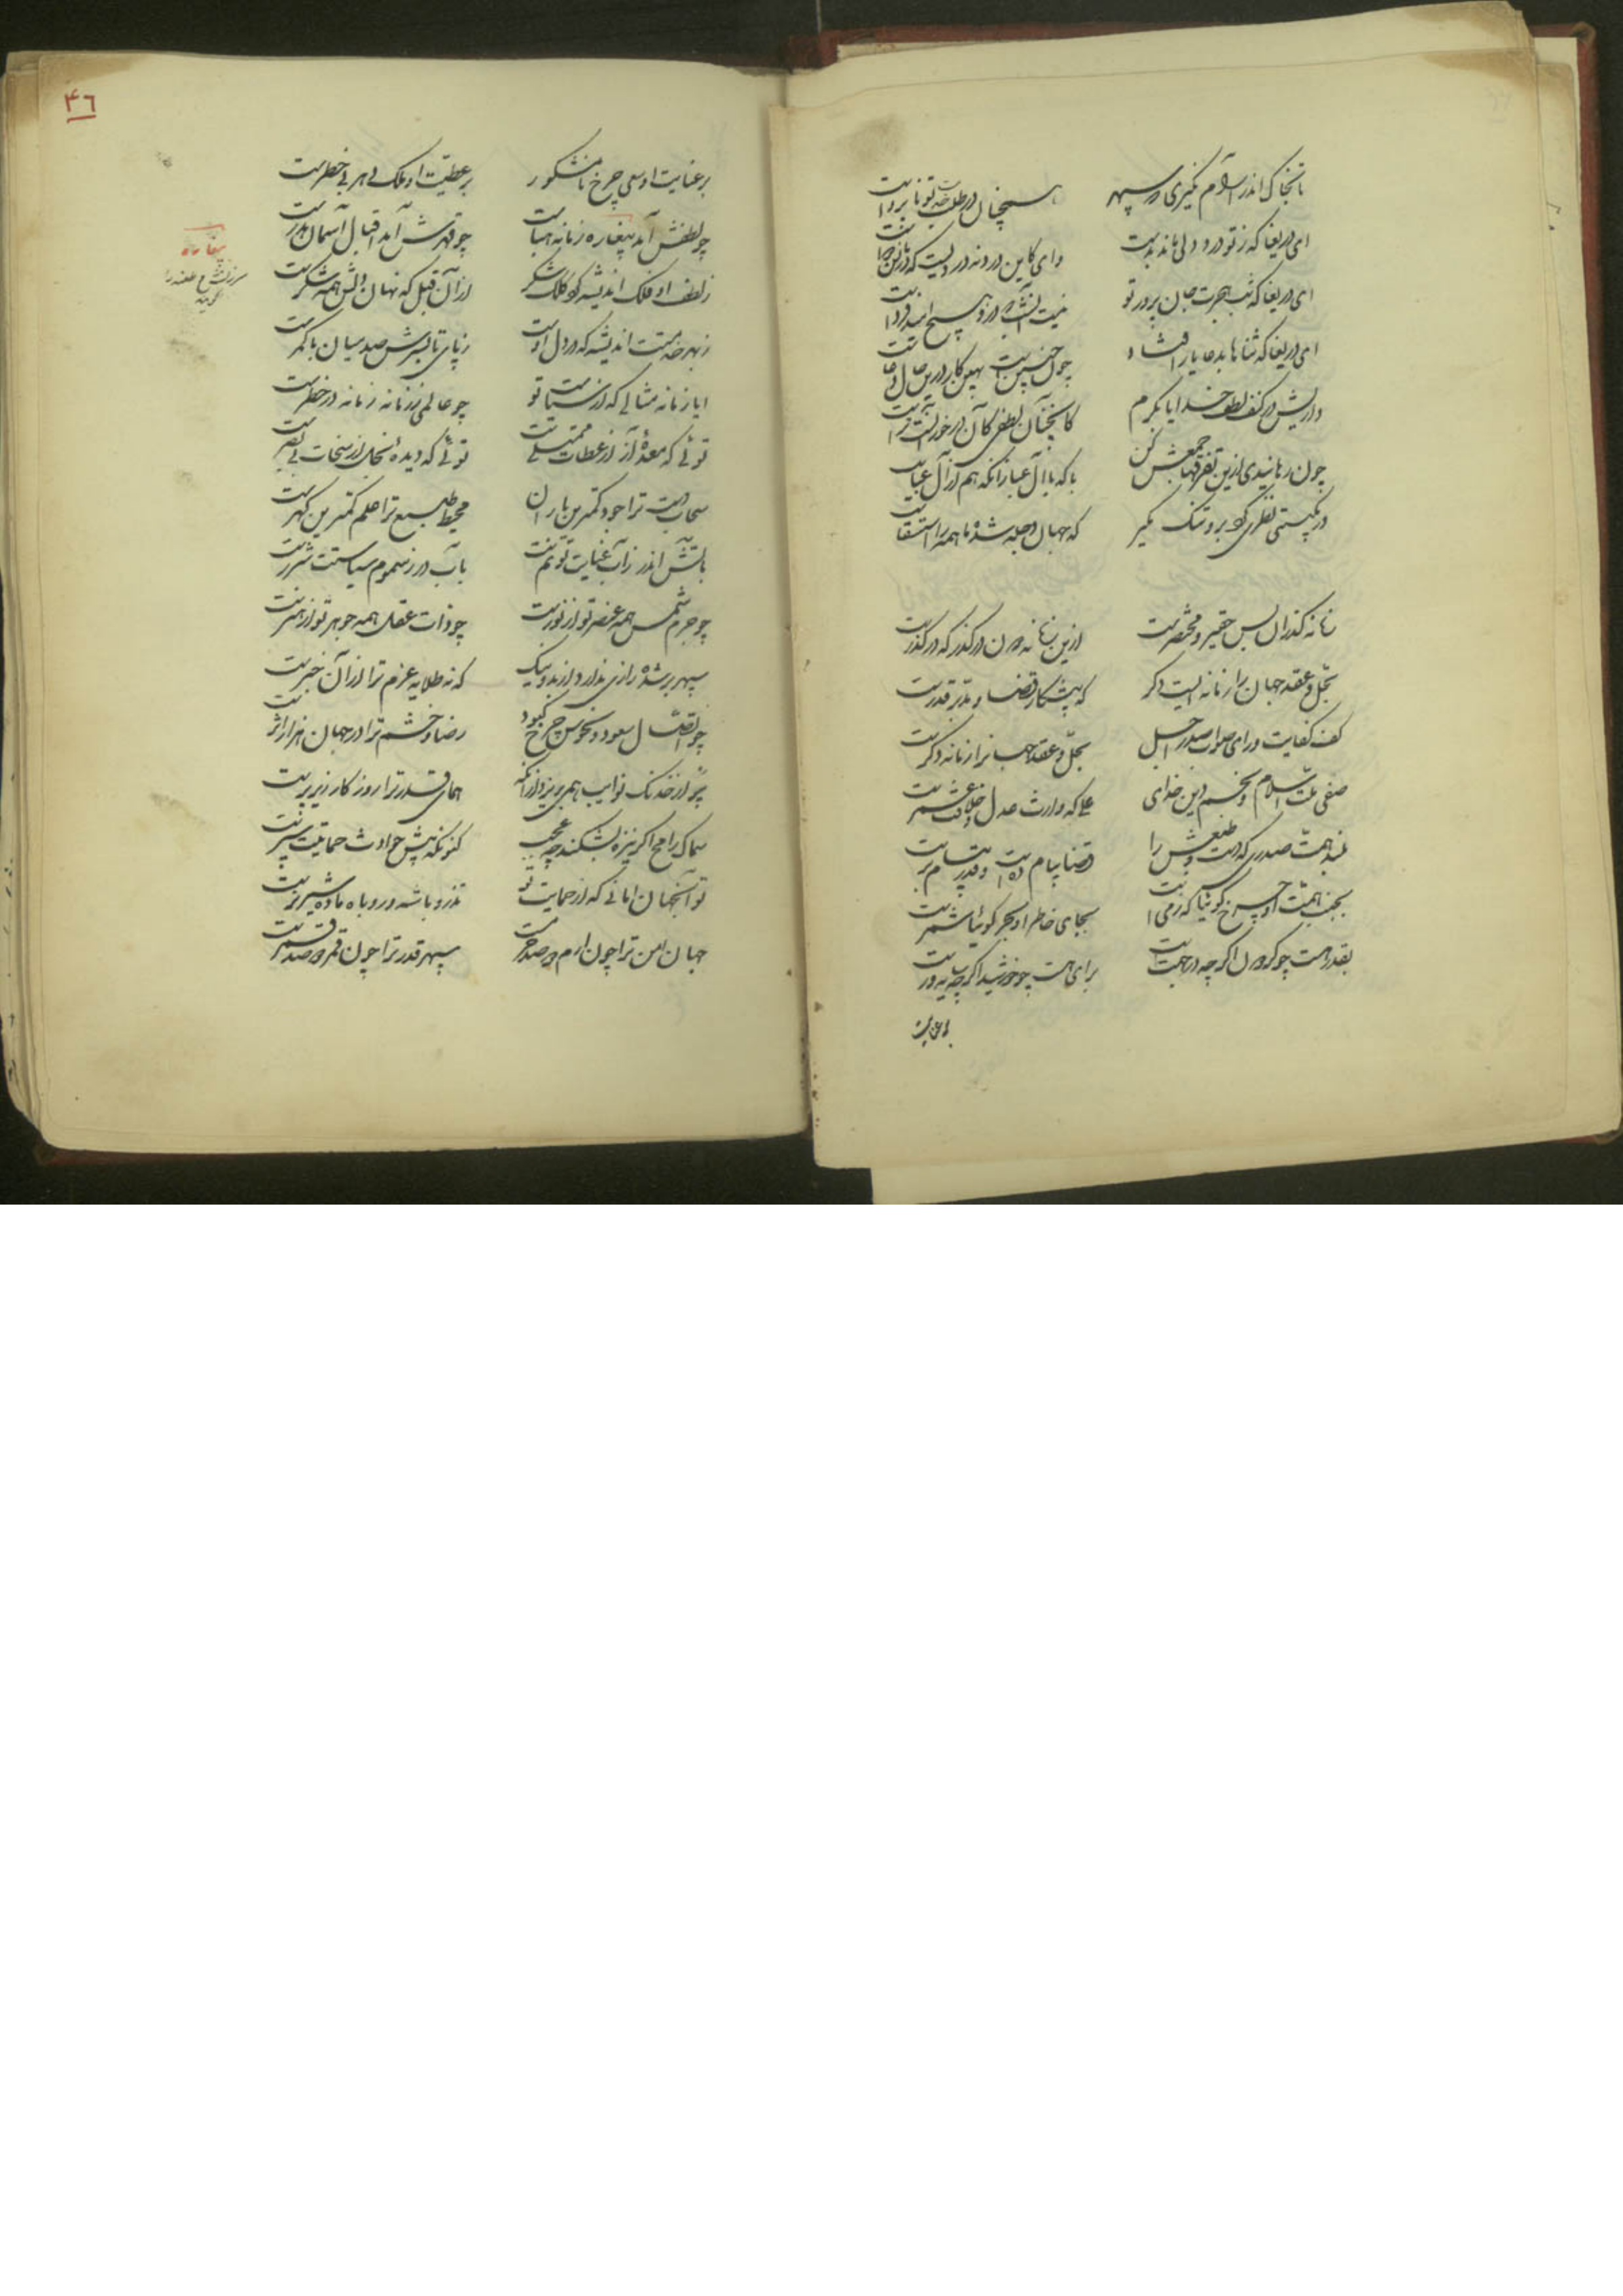 تا بخاک اندر آرام نگیری که سپهر همچنان در طلب خدمت تو نابرواست
ای دریغا که ز تو درد دلی ماند بدست وای کاین درد نه دردیست که درمانش دواست
ای دریغا که شب هجرت جان پرور تو
ای دریغا که ثناها بدعا باز افتاد چون چنین است بهین کار درین حال دعاست
داریش در کنف لطف خدایا بکرم کانچنان لطفی کان درخور آنست تراست
چون رهانیدی ازین تفرقها جمعش کن با که با آل عبا زانکه هم از آل عباست
در بگیتی نظری کو برو تنگ مگیر که جهان دجله شده ما همه را استسقاست
زمانه گذران بس حقیر و مختصرست ازین زمانه دون درگذر که درگذرست
بحل و عقد جهان را زمانه ایست دگر که پیشکار قضا و مدبر قدرست
کف کفایت و رای صواب صدر اجل بحل و عقد جهانرا زمانه دگرست
صفی ملت اسلام و نجم دین خدای علی که وارث عدل و خلافت عمرست
بلند همت صدری که دست و طبعش را قضا پیام ده است و قدر پیام برست
بجنب همت او چرخ گوئیا که زمی است بجای خاطر او بحر گوئیا شمرست
بقدر هست چو گردون اگر چه در جهتست برای هست چو خورشید اگر چه سایه ورست
بر عنایت
۴۶
بر عنایت او سعی چرخ نامشکور بر عطیت او ملک دهر بی خطرست
چو لطفش آمد پیغاره زمانه هباست چو قهرش آمد اقبال آسمان هدرست
ز لطف او فلک اندیشه کرد کلک شکر از آن قبل که نهان دلش همه شکرست
ز بهر خدمت اندیشه که در دل اوست ز پای تا بسرش صد میان با کمرست
ایا زمانه مثالی که از سیاست تو چو عالمی ز زمانه زمانه در خطرست
توئی که معده آز از عطات ممتلی است توئی که دیده بخل از سخات بی بصرست
سحاب دست ترا جود کمترین باران محیط طبع ترا علم کمترین گهرست
بآتش اندر ز آب عنایت تو نم است بآب در ز سموم سیاستت شررست
چو جرم شمس همه عنصر تو از نورست چو ذات عقل همه جوهر تو از هنرست
سپهر برشده رازی ندارد از بد و نیک که نه طلایه عزم ترا از آن خبرست
چو اتصال سعود و نحوس چرخ کبود رضا و خشم ترا در جهان هزار اثرست
پر از خدنگ نوایب همی بریزد از آنکه همای قدر ترا روزگار زیر پرست
سماک رامح اگر نیزه بشکند چه عجب کنونکه پیش حوادث حمایتت سپرست
تو آنجهان امانی که از حمایت تو تذرو باشه و روباه ماده شیر نرست
جهان امن ترا چون ارم دو صد حرمست سپهر قدر ترا چون قمر دو صد قمرست
پیغاره
سرزنش و طعنه را گویند